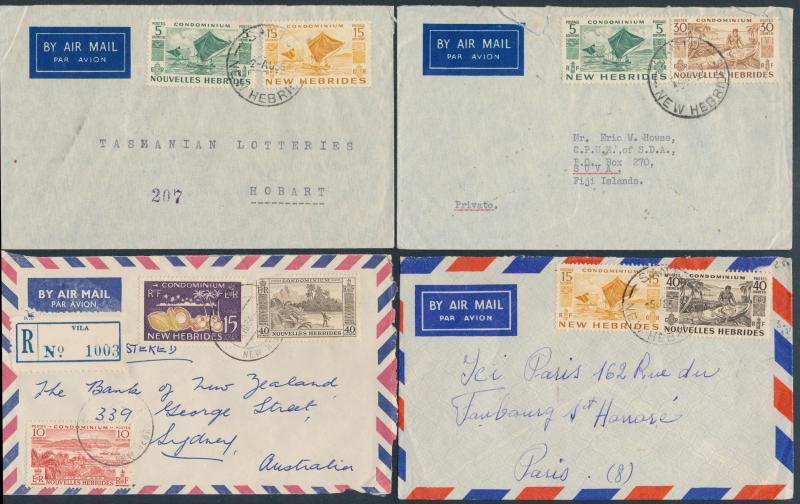 BY AIR MAIL
PAR AVION
POSTES
5
CONDOMINIUM
5
NOUVELLES HEBRIDES
RF
15
CONDOMINIUM
15
NEW HEBRIDES
RF
NEW HEBRID
TASMANIAN LOTTERIES
207
HOBART
BY AIR MAIL
PAR AVION
5
CONDOMINIUM
5
NOUVELLES HEBRIDES
RF
30
CONDOMINIUM
30
NEW HEBRIDES
RF
NEW HEBRID
Mr. Eric W. Howse,
C.P.U.R. of S.D.A.,
P.O. Box 270,
SUVA,
Fiji Islands.
Private.
BY AIR MAIL
PAR AVION
VILA
R No 1003
STERED
CONDOMINIUM
RF
E II R
15
NEW HEBRIDES
CONDOMINIUM
40
40
NOUVELLES HEBRIDES
NEW
The Bank of New Zealand
339 George Street,
Sydney,
Australia
10
CONDOMINIUM
10
NOUVELLES HEBRIDES
BY AIR MAIL
PAR AVION
15
CONDOMINIUM
15
NEW HEBRIDES
RF
40
CONDOMINIUM
40
NOUVELLES HEBRIDES
RF
Ici Paris 162 Rue du
Faubourg St Honoré
Paris. (8)